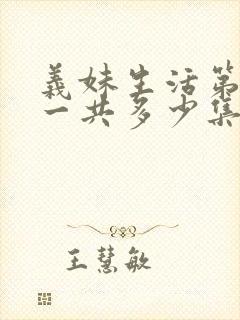 義妹生活第
一共多少集
王慧敏